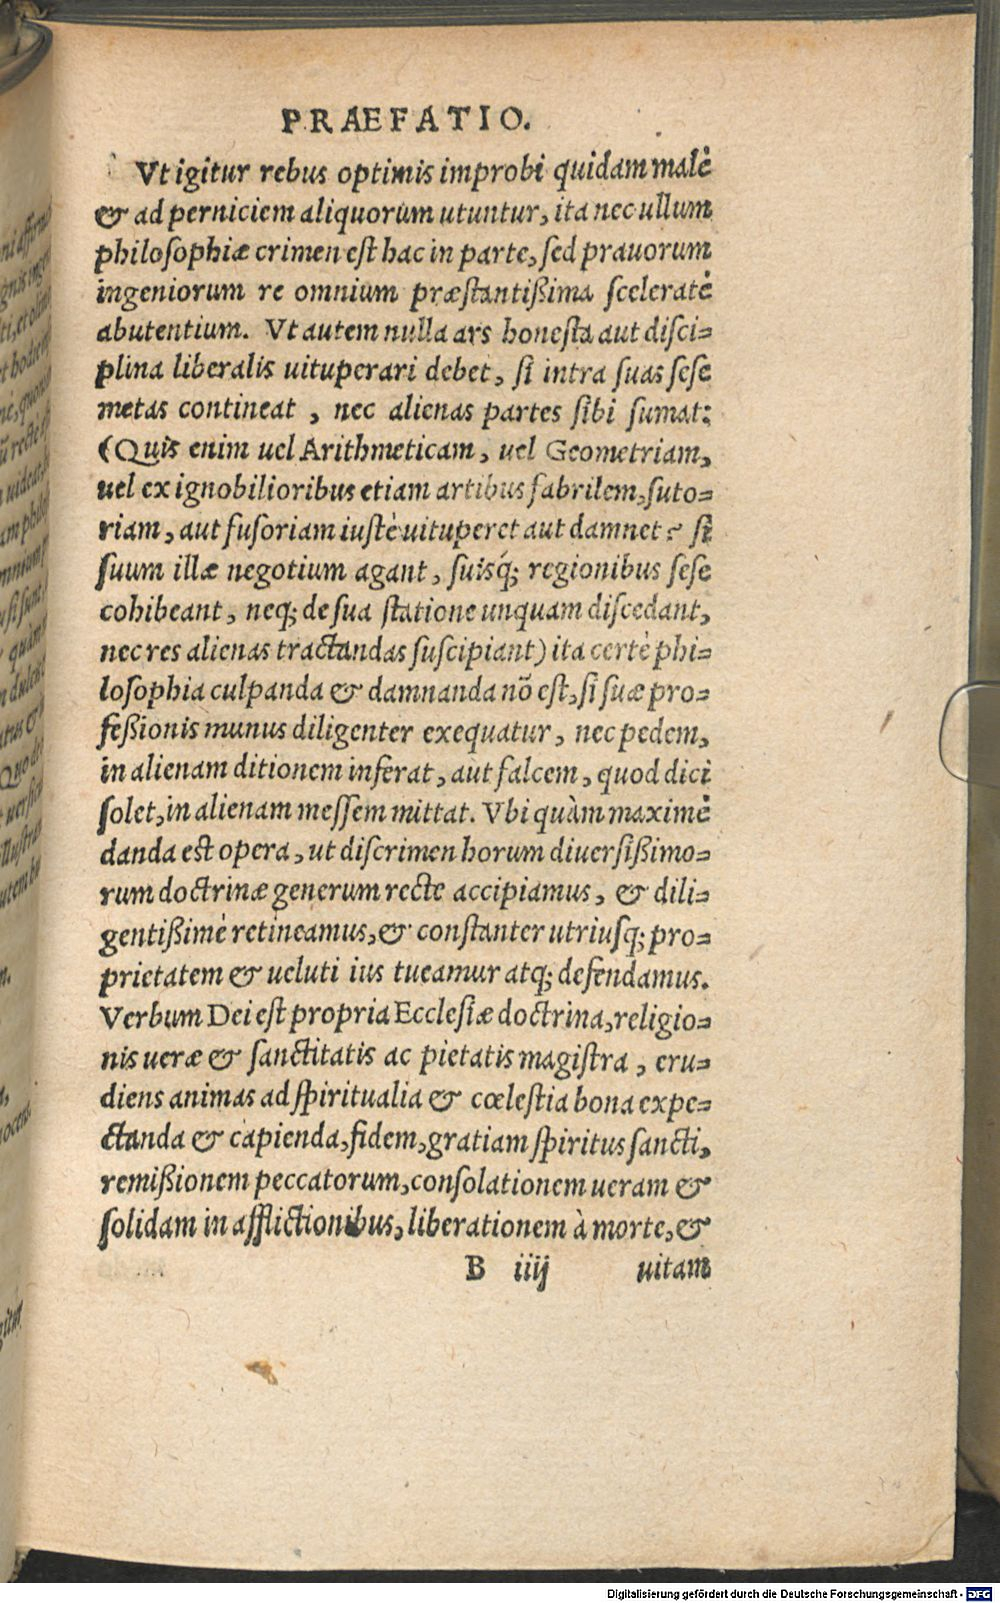 PRAEFATIO.
Vt igitur rebus optimis improbi quidam malè
& ad perniciem aliquorum utuntur, ita nec ullum
philosophiæ crimen est hac in parte, sed prauorum
ingeniorum re omnium præstantißima sceleratè
abutentium. Vt autem nulla ars honesta aut disci-
plina liberalis uituperari debet, si intra suas sese
metas contineat, nec alienas partes sibi sumat:
(Quis enim uel Arithmeticam, uel Geometriam,
uel ex ignobilioribus etiam artibus fabrilem, suto-
riam, aut fusoriam iustè uituperet aut damnet? si
suum illæ negotium agant, suisq́; regionibus sese
cohibeant, neq; de sua statione unquam discedant,
nec res alienas tractandas suscipiant) ita certè phi-
losophia culpanda & damnanda nō est, si suæ pro-
feßionis munus diligenter exequatur, nec pedem,
in alienam ditionem inferat, aut falcem, quod dici
solet, in alienam messem mittat. Vbi quàm maximè
danda est opera, ut discrimen horum diuersißimo-
rum doctrinæ generum recte accipiamus, & dili-
gentißimè retineamus, & constanter utriusq; pro-
prietatem & ueluti ius tueamur atq; defendamus.
Verbum Dei est propria Ecclesiæ doctrina, religio-
nis ueræ & sanctitatis ac pietatis magistra, eru-
diens animas ad spiritualia & cœlestia bona expe-
ctanda & capienda, fidem, gratiam spiritus sancti,
remißionem peccatorum, consolationem ueram &
solidam in afflictionibus, liberationem à morte, &
B iiij uitam
Digitalisierung gefördert durch die Deutsche Forschungsgemeinschaft - DFG